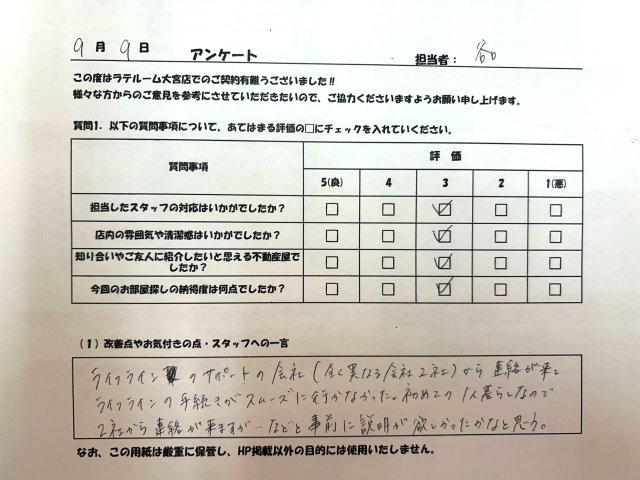 9月9日 アンケート 担当者：谷口
この度はラテルーム大宮店でのご契約有難うございました!!
様々な方からのご意見を参考にさせていただきたいので、ご協力くださいますようお願い申し上げます。
質問1. 以下の質問事項について、あてはまる評価の□にチェックを入れていください。
質問事項 評価
5(良) 4 3 2 1(悪)
担当したスタッフの対応はいかがでしたか？
店内の雰囲気や清潔感はいかがでしたか？
知り合いやご友人に紹介したいと思える不動産屋で
したか？
今回のお部屋探しの納得度は何点でしたか？
(1) 改善点やお気付きの点・スタッフへの一言
ライフラインのサポートの会社(全く異なる会社2社)から連絡が来て
ライフラインの手続きがスムーズに行かなかった。初めての1人暮らしなので
2社から連絡が来ますが…などと事前に説明が欲しかったかなと思う。
なお、この用紙は厳重に保管し、HP掲載以外の目的には使用いたしません。